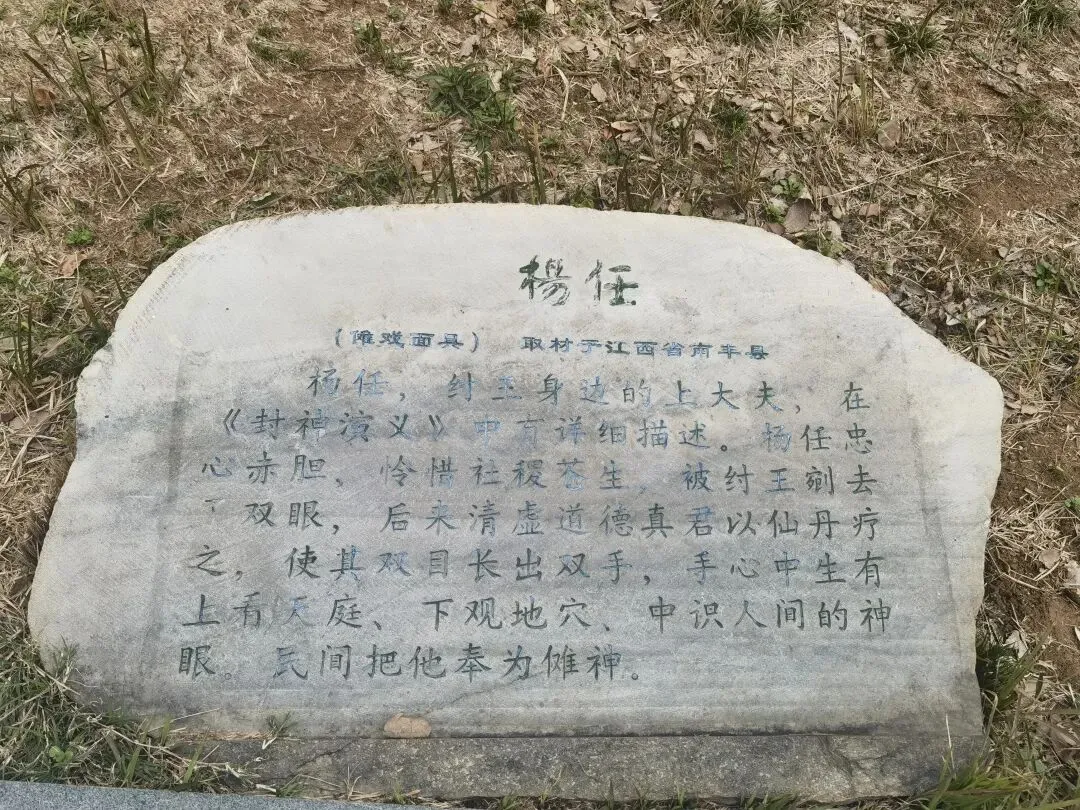 楊任
（傩戏面具） 取材于江西省南丰县
杨任，纣王身边的上大夫，在
《封神演义》中有详细描述。杨任忠
心赤胆，怜惜社稷苍生，被纣王剜去
双眼，后来清虚道德真君以仙丹疗
之，使其双目长出双手，手心中生有
上看天庭、下观地穴、中识人间的神
眼。民间把他奉为傩神。